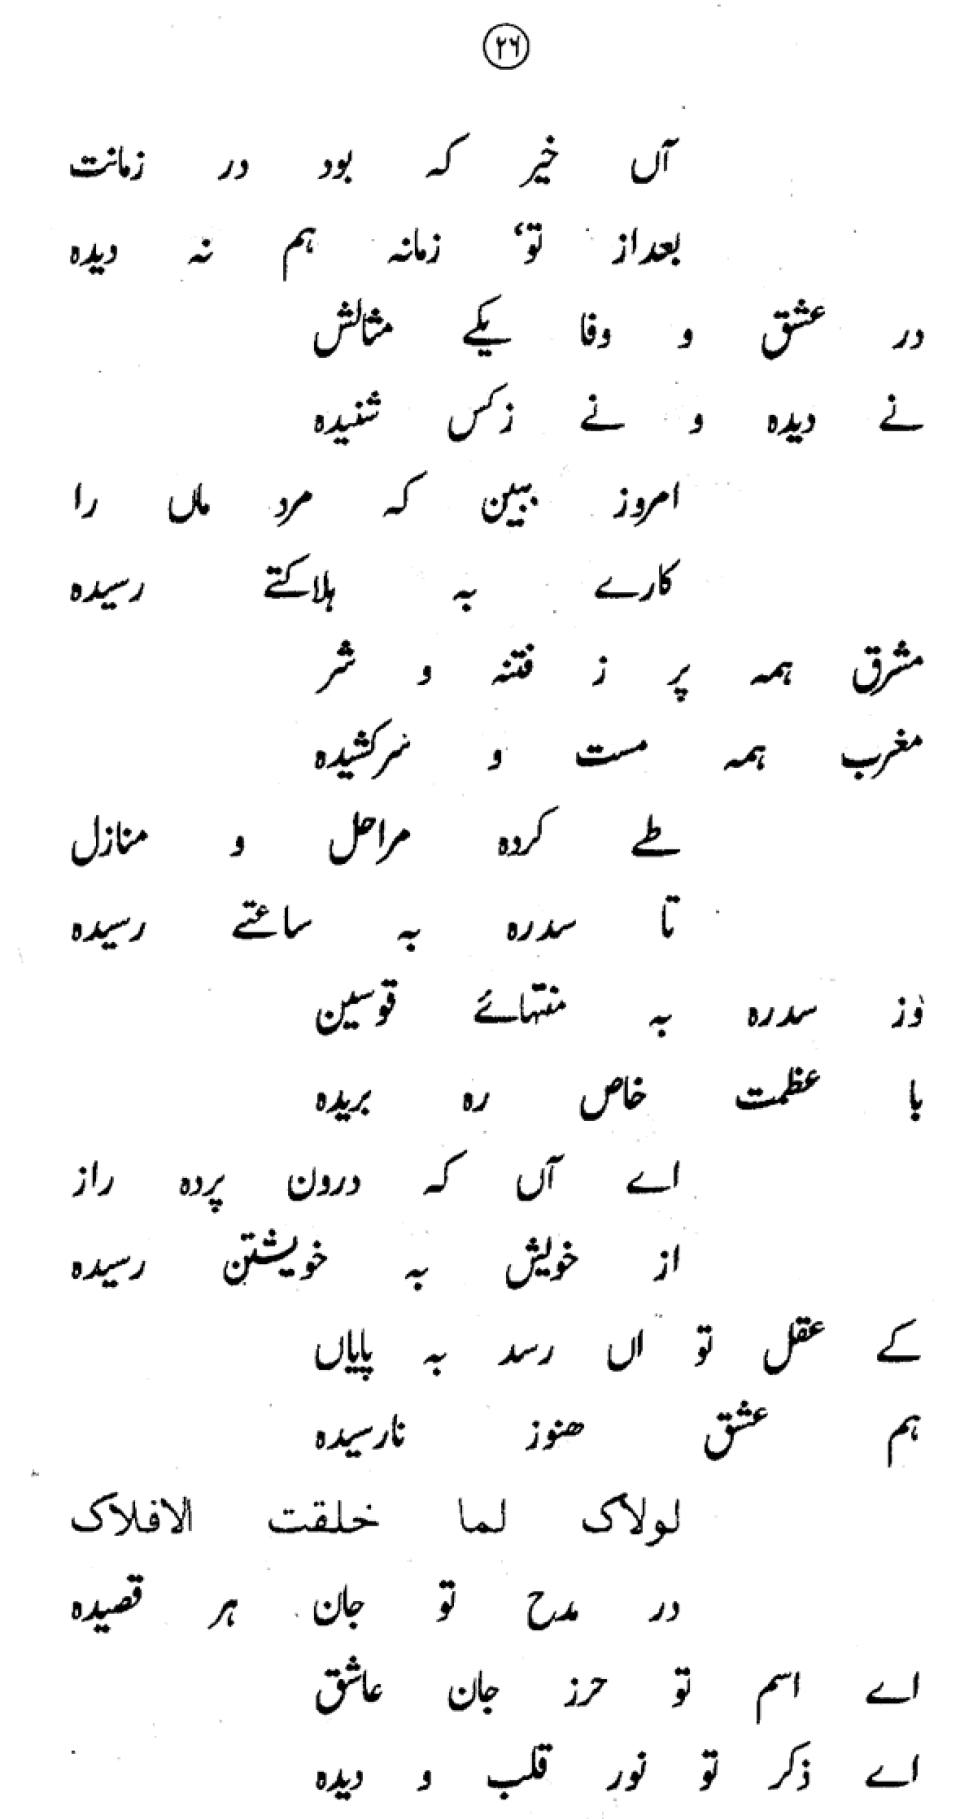 ۲۶
آں خیر کہ بود در زمانت
بعد از تو، زمانہ ہم نہ دیدہ
در عشق و وفا یکے مثالش
نے دیدہ و نے زکس شنیدہ
امروز ببین کہ مرد ماں را
کارے بہ ہلاکتے رسیدہ
مشرق ہمہ پر ز فتنہ و شر
مغرب ہمہ مست و سرکشیدہ
طے کردہ مراحل و منازل
تا سدرہ بہ ساعتے رسیدہ
وز سدرہ بہ منتہائے قوسین
با عظمت خاص رہ بریدہ
اے آں کہ درون پردہ راز
از خویش بہ خویشتن رسیدہ
کے عقل تو اں رسد بہ پایاں
ہم عشق ھنوز نارسیدہ
لولاک لما خلقت الافلاک
در مدح تو جان ہر قصیدہ
اے اسم تو حرز جان عاشق
اے ذکر تو نور قلب و دیدہ